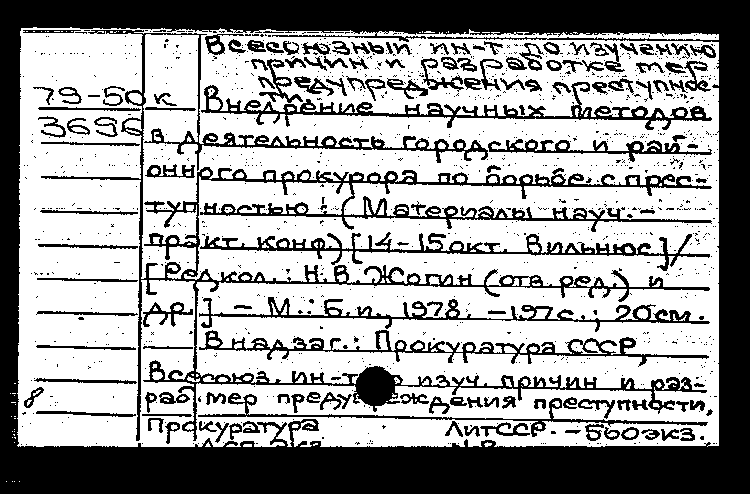 Всесоюзный ин-т по изучению
причин и разработке мер
предупреждения преступнос-
ти.
79-50 к Внедрение научных методов
3696 в деятельность городского и рай-
онного прокурора по борьбе с прес-
тупностью : (Материалы науч.-
практ. конф.) [14-15 окт. Вильнюс] /
[Редкол.: Н.В. Жогин (отв. ред.) и
др.] - М.: Б.и., 1978. - 197 с.; 20 см.
В надзаг.: Прокуратура СССР,
Всесоюз. ин-т изуч. причин и раз-
8 раб. мер предупреждения преступности,
Прокуратура ЛитССР. - 560 экз.